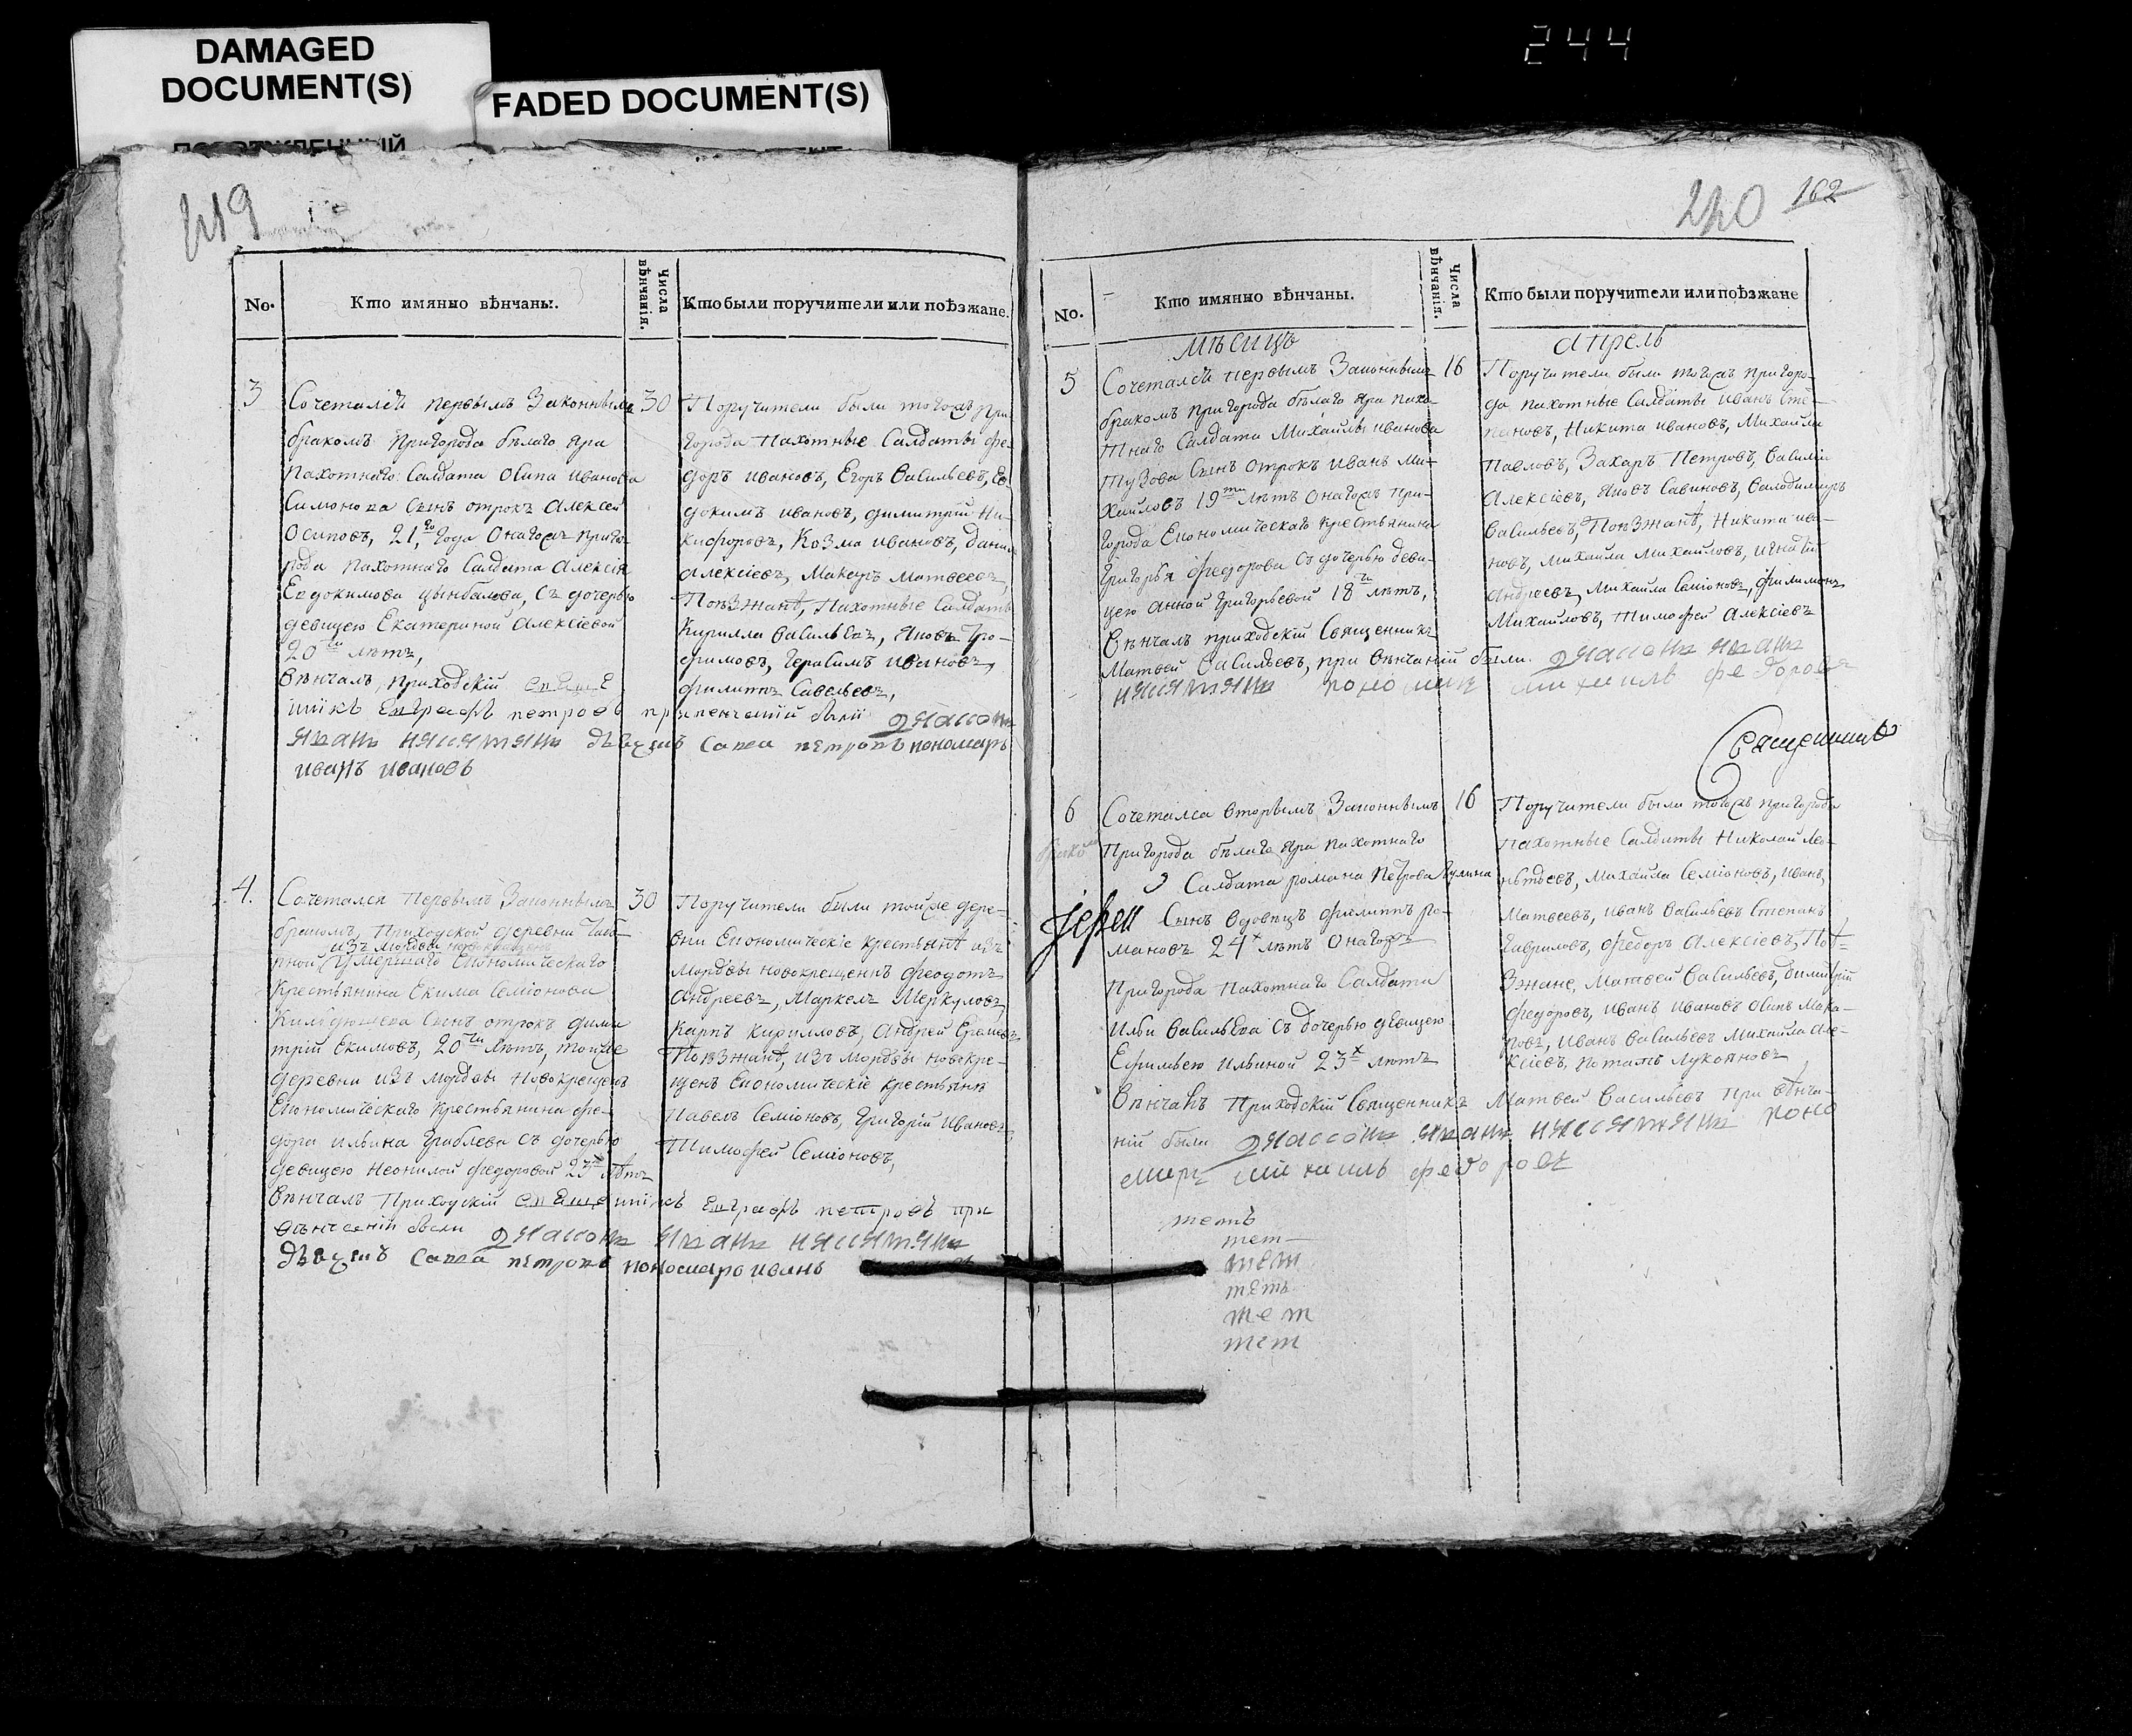 DAMAGED
DOCUMENT(S)
FADED DOCUMENT(S)
244
419
No.
Кто имянно вѣнчаны.
Числа
вѣнчанія.
Кто были поручители или поѣзжане.
3
Сочетался первымъ Законнымъ
бракомъ пригорода бѣлаго яра
пахотнаго Салдата Осипа иванова
Симонова Сынъ отрокъ Алексей
Осиповъ, 21,го года Онагожъ приго-
рода пахотнаго Салдата Алексея
Евдокимова цынбалова, Съ дочерью
девицею Екатериной Алексіевой
20ти лѣтъ,
Вѣнчалъ, приходскій
петровъ при венчаніи были
Савва петровъ пономарь
иванъ ивановъ
30
Поручители были тогожъ при
города Пахотные Салдаты Фе-
доръ ивановъ, Егоръ Васильевъ, Ев-
докимъ ивановъ, димитрій Ни-
кифоровъ, Козма ивановъ, данил
алексіевъ, Макаръ матвеевъ,
Поѣзжанѣ, Пахотные Салдаты
Кирилла Васильевъ, яковъ Тро-
фимовъ, Герасимъ ивановъ,
филиппъ Савельевъ,
4.
Сочетался первымъ Законнымъ
бракомъ, Приходской деревни
изъ мордвы новокрещенъ
умершаго Економическаго
Крестьянина Екима Семіонова
Сынъ отрокъ дими
трій Екимовъ, 20ти лѣтъ, тойже
деревни изъ мордвы новокрещенъ
Економическаго крестьянина фе-
дора ильина Граблева съ дочерью
девицею Неонилой федоровой 23хъ лѣтъ
Вѣнчалъ Приходскій петровъ при
вѣнчаній были
Савва петровъ пономарь иванъ
30
Поручители были тойже дере-
вни Економическіе крестьянѣ изъ
мордвы новокрещенъ Феодотъ
андреевъ, Маркелъ Меркуловъ,
карпъ кирилловъ, андрей
Поѣзжанѣ, изъ мордвы новокре-
щенъ Економическіе крестьянѣ
павелъ Семіоновъ, Григорій ивановъ,
Тимофей Семіоновъ,
240 162
No.
Кто имянно вѣнчаны.
Числа
вѣнчанія.
Кто были поручители или поѣзжане
мѣсяцъ апрель
5
Сочетался первымъ Законнымъ
бракомъ пригорода бѣлаго яра пахо-
тнаго Салдата Михайлы иванова
Тузова Сынъ отрокъ иванъ ми-
хайловъ 19ти лѣтъ онагожъ при-
города Економическаго крестьянина
Григорья федорова съ дочерью деви-
цею анной григорьевой 18ти лѣтъ,
Вѣнчалъ приходскій Священникъ
Матвей Васильевъ, при вѣнчаній были
михаилъ федоровъ
16
Поручители были тогожъ пригоро-
да пахотные Салдаты иванъ Сте-
пановъ, Никита ивановъ, Михайла
Павловъ, Захаръ Петровъ, Василій
Алексіевъ, яковъ Савиновъ, Валодимиръ
Васильевъ, Поѣзжанѣ, Никита ива-
новъ, михайла михайловъ, игнатій
андреевъ, михайла Семіоновъ, филимонъ
Михайловъ, тимофей алексіевъ
Священникъ
6
Сочетался вторымъ Законнымъ
бракомъ Пригорода бѣлаго яра пахотнаго
Салдата романа петрова
іерей
Сынъ вдовецъ филиппъ ро-
мановъ 24х лѣтъ онагожъ
Пригорода пахотнаго Салдата
ильи Васильева съ дочерью девицею
ильиной 23х лѣтъ
Вѣнчалъ приходскій Священникъ Матвей Васильевъ при вѣнча-
ній были поно
марь михаилъ федоровъ
16
Поручители были тогожъ пригорода
пахотные Салдаты Николай лео-
нтьевъ, михайла Семіоновъ, иванъ
Матвеевъ, иванъ Васильевъ Степанъ
Гавриловъ, федоръ алексіевъ, Поѣ-
зжане, матвей Васильевъ, димитрій
федоровъ, иванъ ивановъ осипъ мака-
ровъ, иванъ Васильевъ михайла але-
ксіевъ, потапъ лукояновъ